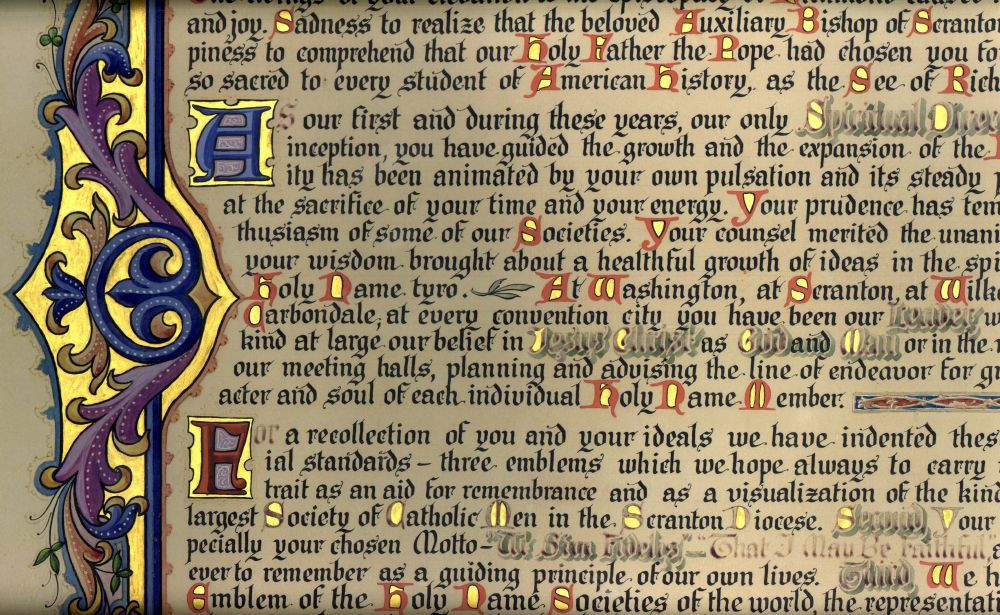 and joy. Sadness to realize that the beloved Auxiliary Bishop of Scranton
piness to comprehend that our Holy Father the Pope had chosen you fo
so sacred to every student of American History, as the See of Rich
As our first and during these years, our only Spiritual Direc
inception, you have guided the growth and the expansion of the
ity has been animated by your own pulsation and its steady p
at the sacrifice of your time and your energy. Your prudence has tem
thusiasm of some of our Societies. Your counsel merited the unani
your wisdom brought about a healthful growth of ideas in the spi
Holy Name tyro. At Washington, at Scranton, at Wilke
Carbondale, at every convention city you have been our Leader w
kind at large our belief in Jesus Christ as God and Man or in the m
our meeting halls, planning and advising the line of endeavor for gr
acter and soul of each individual Holy Name Member.
For a recollection of you and your ideals we have indented thes
ial standards – three emblems which we hope always to carry
trait as an aid for remembrance and as a visualization of the kind
largest Society of Catholic Men in the Scranton Diocese. Second, Your
pecially your chosen Motto – "Ut Sim Fidelis," – "That I May Be Faithful" a
ever to remember as a guiding principle of our own lives. Third, We h
Emblem of the Holy Name Societies of the world the representati